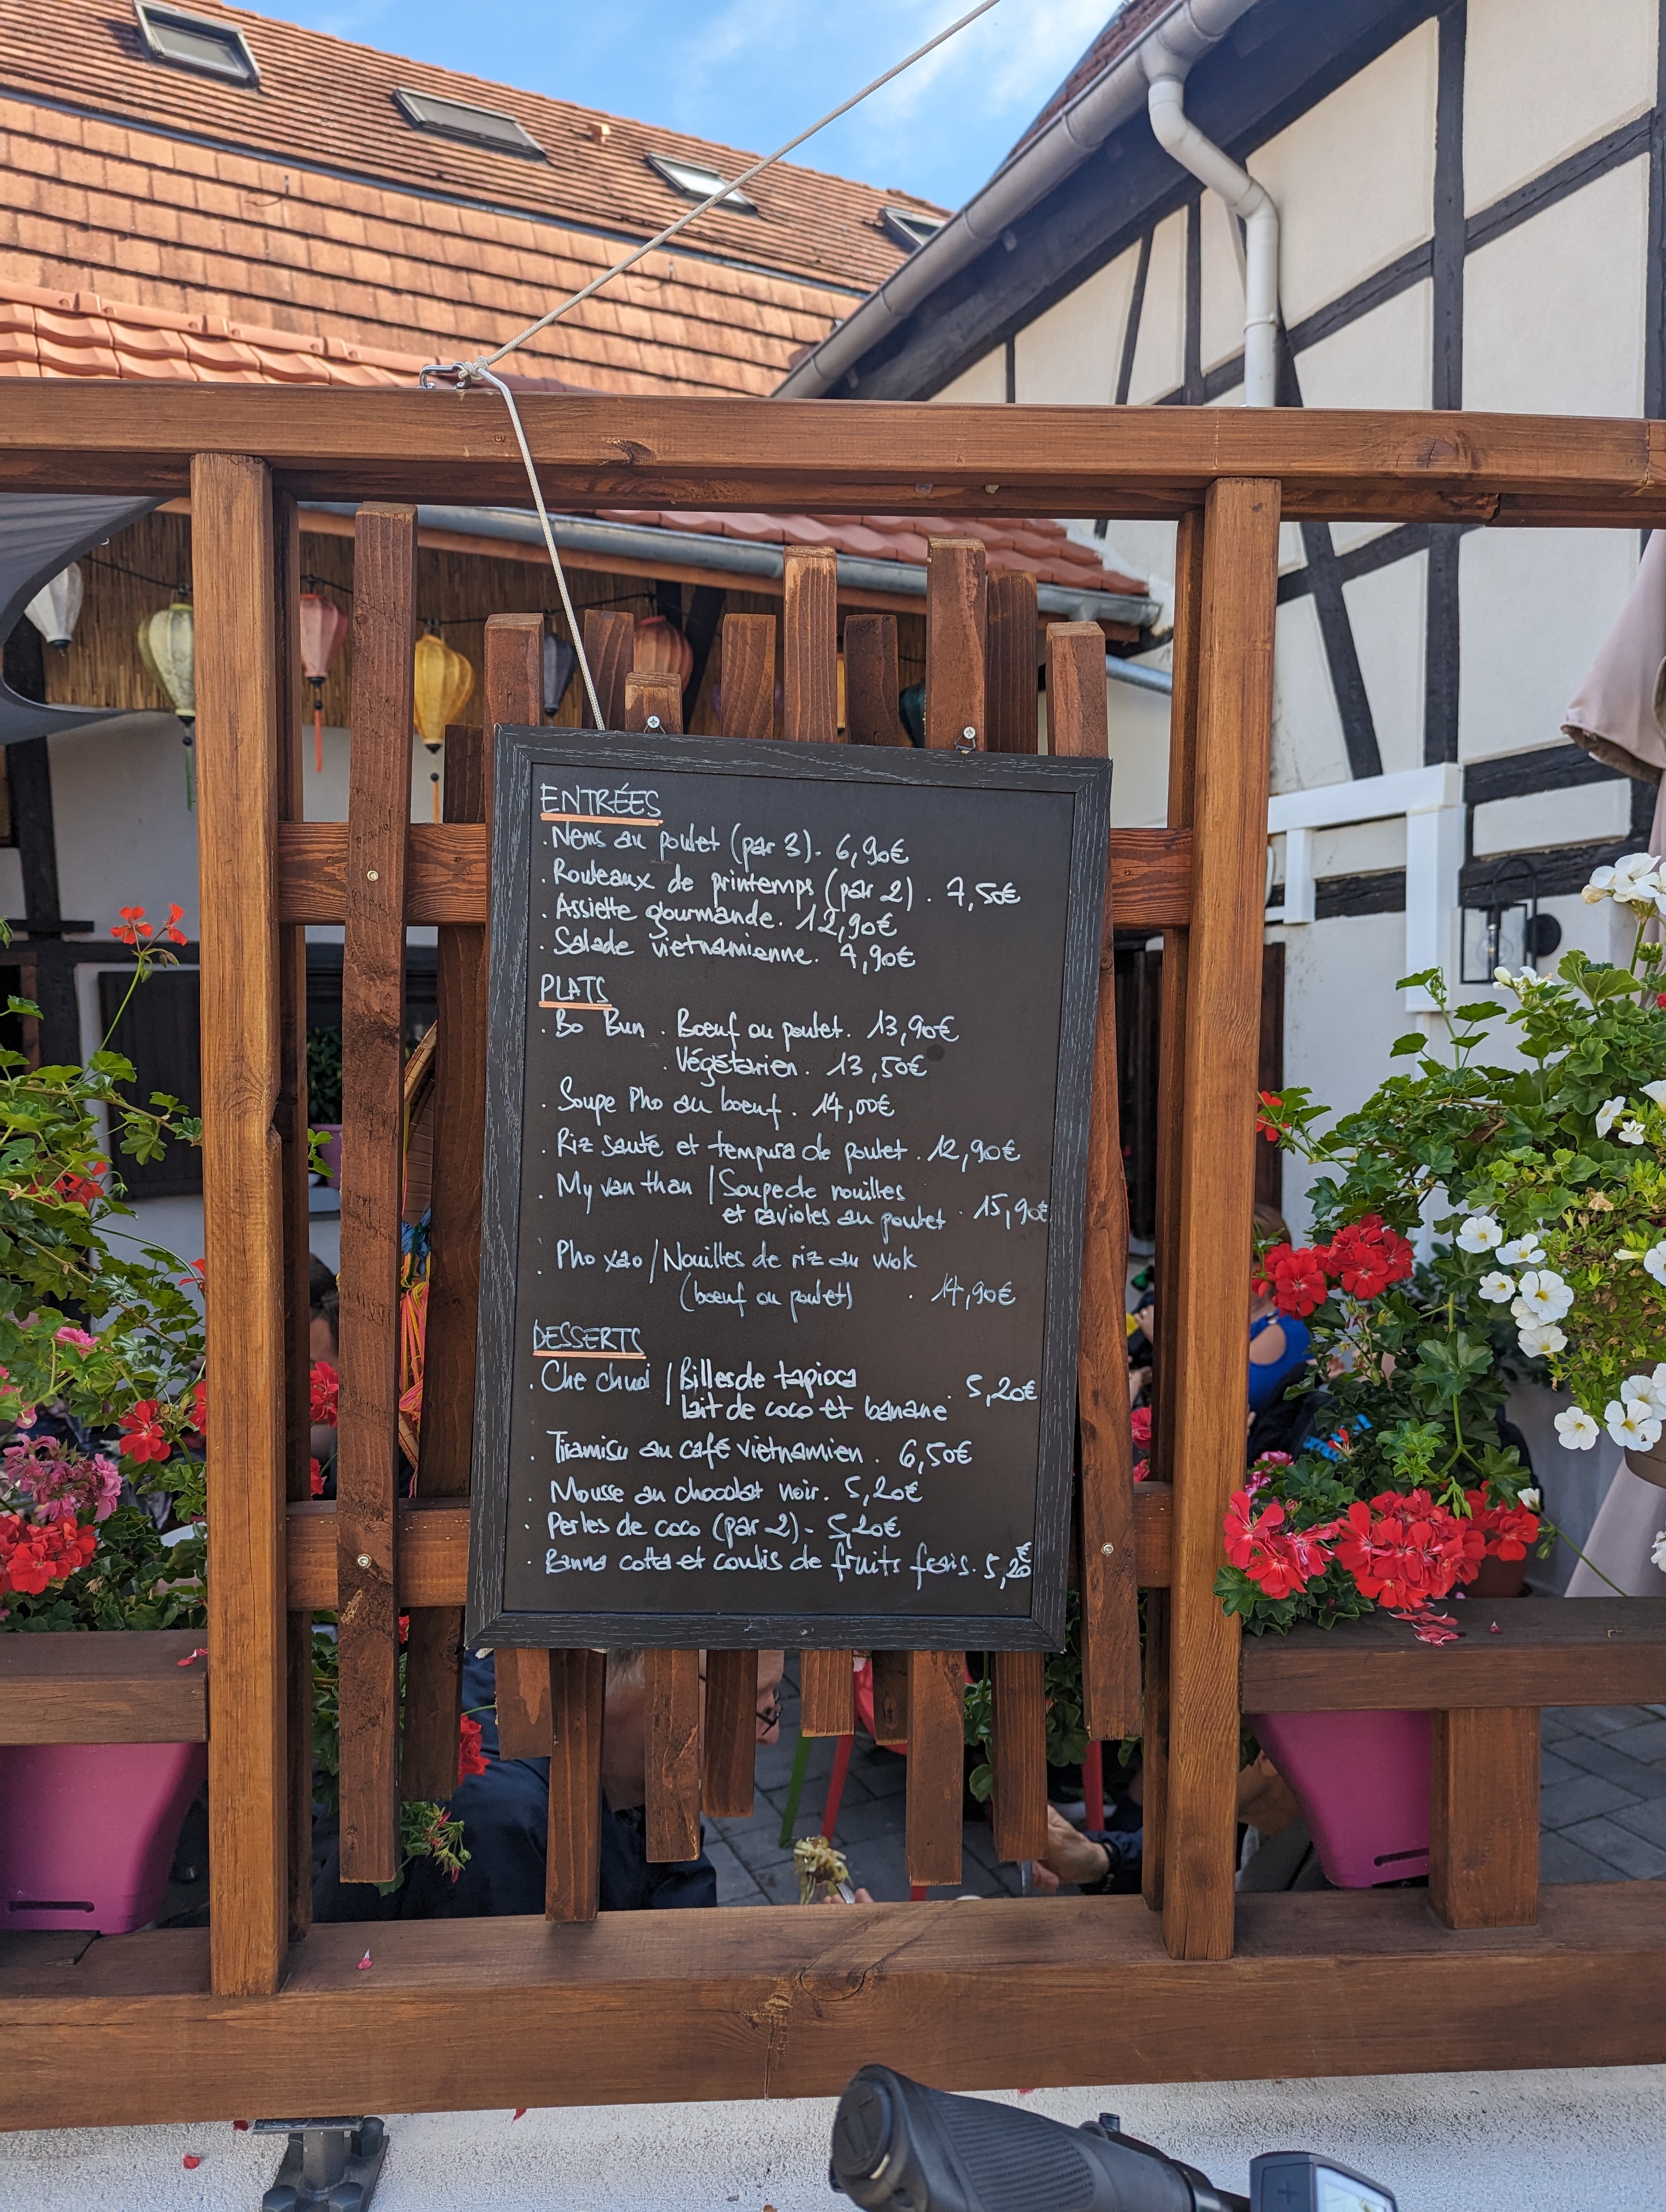 ENTRÉES
. Nems au poulet (par 3). 6,90€
. Rouleaux de printemps (par 2). 7,50€
. Assiette gourmande. 12,90€
. Salade vietnamienne. 7,90€
PLATS
. Bo Bun . Boeuf ou poulet. 13,90€
. Végétarien. 13,50€
. Soupe Pho au boeuf. 14,00€
. Riz sauté et tempura de poulet. 12,90€
. My van than / Soupe de nouilles
et ravioles au poulet . 15,90€
. Pho xao / Nouilles de riz au wok
(boeuf ou poulet) . 14,90€
DESSERTS
. Che chuoi / Billes de tapioca
lait de coco et banane . 5,20€
. Tiramisu au café vietnamien. 6,50€
. Mousse au chocolat noir. 5,20€
. Perles de coco (par 2). 5,20€
. Panna cotta et coulis de fruits frais. 5,20€